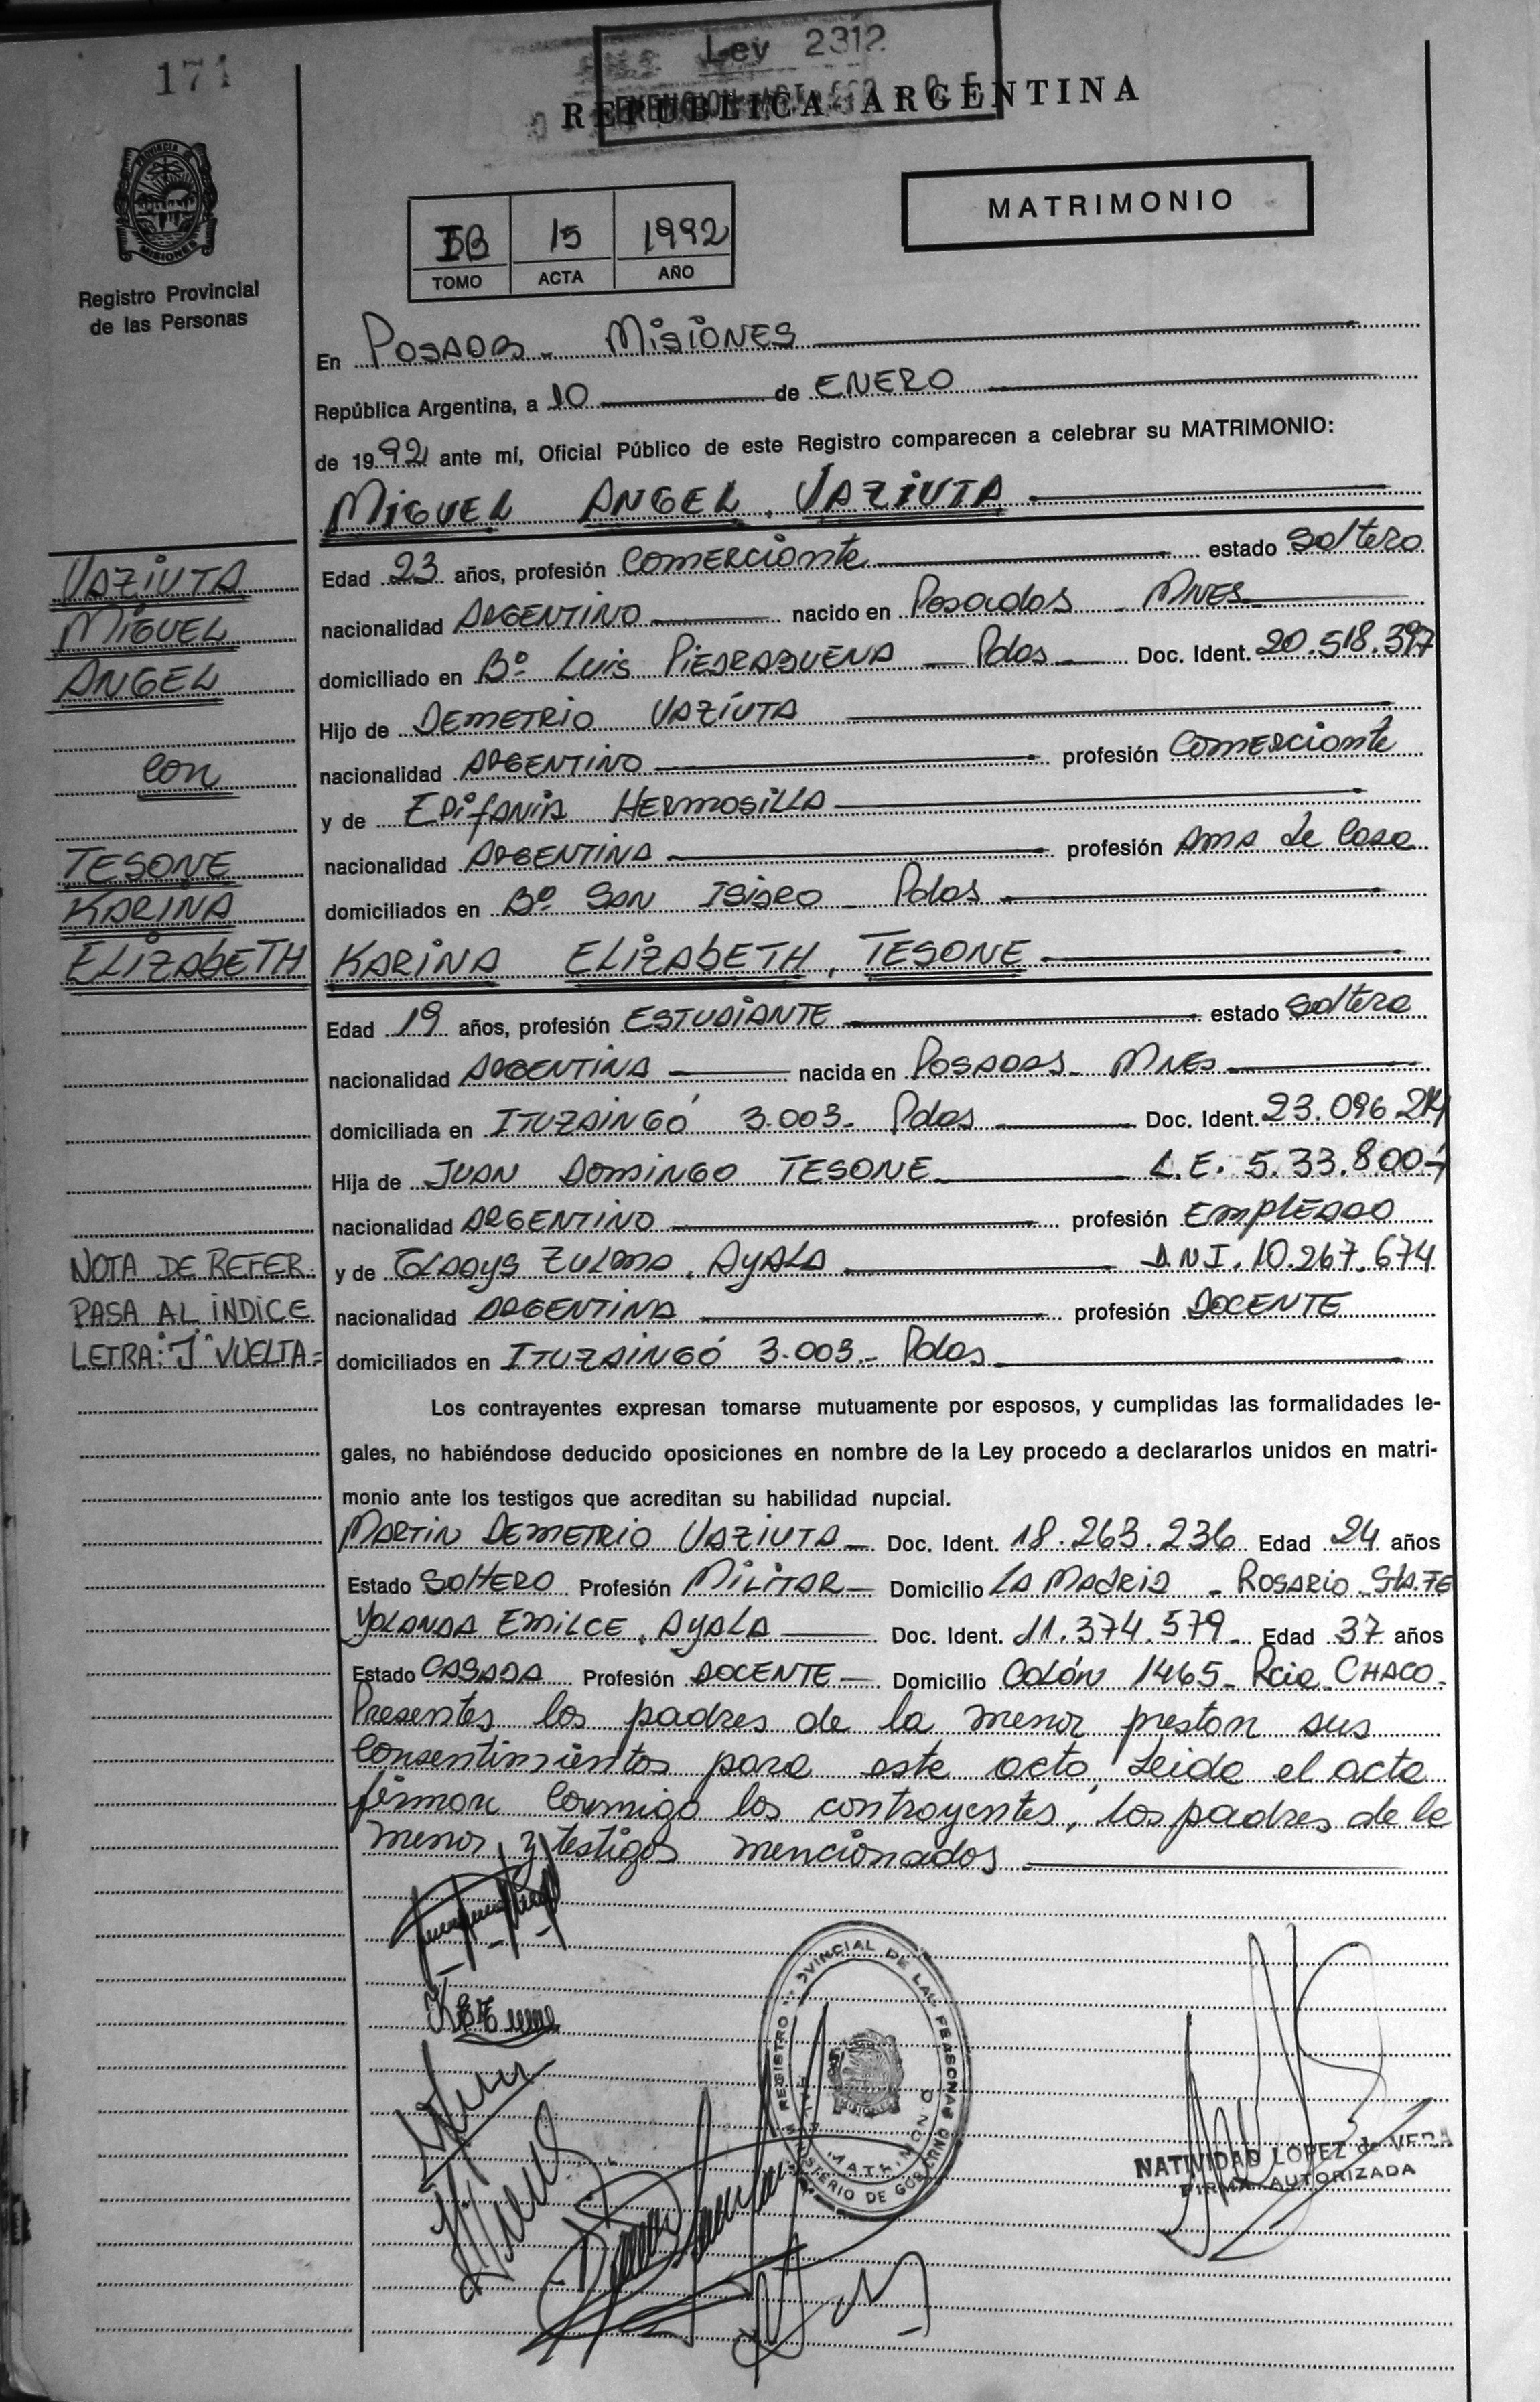 171
Ley 2312
REPUBLICA ARGENTINA
MATRIMONIO
15 1992
TOMO ACTA AÑO
PROVINCIA
MISIONES
Registro Provincial
de las Personas
En Posadas - MisiONES
República Argentina, a 10 de ENERO
de 1992 ante mí, Oficial Público de este Registro comparecen a celebrar su MATRIMONIO:
MiGUEL ANGEL, VAZiUTA
VAZiUTA
MiGUEL
ANGEL
con
TESONE
KARiNA
ELiZAbETH
Edad 23 años, profesión COMERCiante estado Soltero
nacionalidad ARGENTiNO nacido en Posadas - MNES
domiciliado en Bº Luis PiEDRABUENA - Pdas - Doc. Ident. 20.518.397
Hijo de DEMETRiO VAZíUTA
nacionalidad ARGENTiNO profesión Comerciante
y de EPifANiA HERMOSiLLA
nacionalidad ARGENTiNA profesión AMA de Casa
domiciliados en Bº SAN ISiDRO - Pdas
KARiNA ELiZAbETH, TESONE
Edad 19 años, profesión ESTUDiANTE estado Soltera
nacionalidad ARGENTiNA nacida en POSADAS - MNES
domiciliada en ITUZAiNGÓ 3.003 - Pdas Doc. Ident. 23.096.
Hija de JUAN DOMiNGO TESONE L.E. 5.33.800
nacionalidad ARGENTiNO profesión EmplEADO
y de GLADYS ZULMA, AyALA D.N.I. 10.267.674
nacionalidad ARGENTiNA profesión DOCENTE
domiciliados en ITUZAiNGÓ 3.003.- Pdas
NOTA DE REFER.
PASA AL íNDICE
LETRA: "J" VUELTA=
Los contrayentes expresan tomarse mutuamente por esposos, y cumplidas las formalidades le-
gales, no habiéndose deducido oposiciones en nombre de la Ley procedo a declararlos unidos en matri-
monio ante los testigos que acreditan su habilidad nupcial.
MARTiN DEMETRiO VAZiUTA - Doc. Ident. 18.263.236 Edad 24 años
Estado SOltERO Profesión MiLiTAR - Domicilio LA MADRiD - ROSARiO - StA. FE
YOLANDA EMiLCE, AyALA Doc. Ident. 11.374.579 - Edad 37 años
Estado CASADA Profesión DOCENTE - Domicilio COLÓN 1465 - Rcia CHACO -
Presentes los padres de la menor prestan sus
consentimientos para este acto, Leida el acta
firman conmigo los contrayentes, los padres de la
menor y testigos mencionados
REGISTRO PROVINCIAL DE LAS PERSONAS
MINISTERIO DE GOB
MATRIMONIO
MISIONES
NATIVIDAD LOPEZ de VERA
FIRMA AUTORIZADA